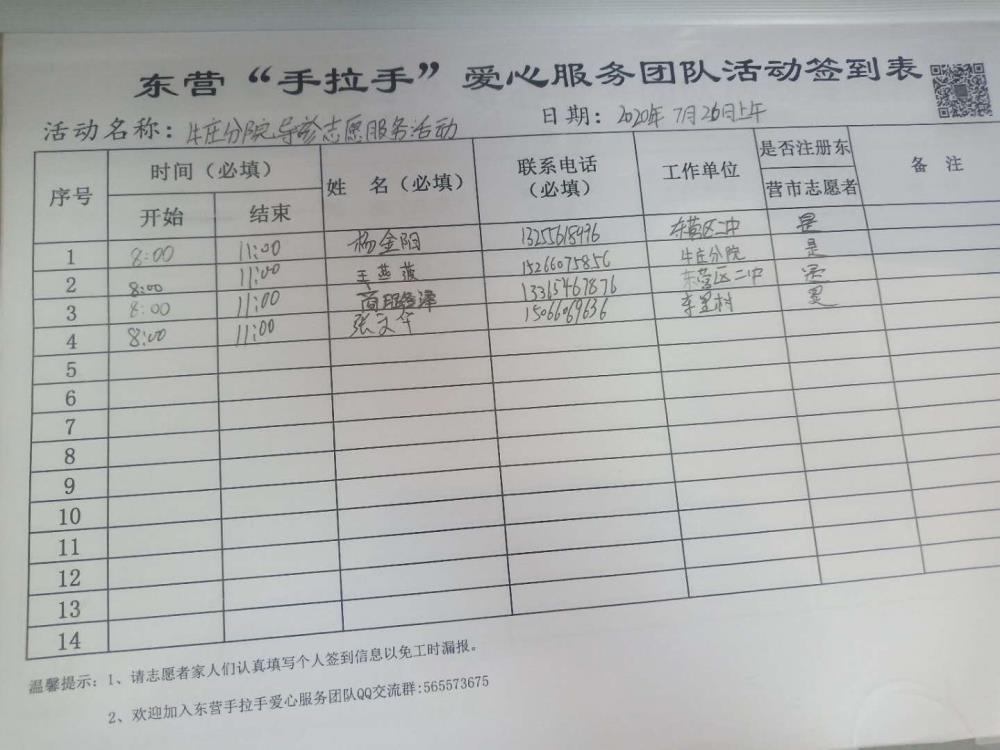 东营“手拉手”爱心服务团队活动签到表
活动名称：牛庄分院导诊志愿服务活动 日期：2020年7月26日上午
序号 时间（必填） 姓 名（必填） 联系电话（必填） 工作单位 是否注册东营市志愿者 备 注
开始 结束
1 8:00 11:00 杨金阳 13255618496 东营区二中 是
2 8:00 11:00 王燕波 15266075856 牛庄分院 是
3 8:00 11:00 13365467876 东营区二中 是
4 8:00 11:00 张文华 15066069636 是
5
6
7
8
9
10
11
12
13
14
温馨提示：1、请志愿者家人们认真填写个人签到信息以免工时漏报。
2、欢迎加入东营手拉手爱心服务团队QQ交流群:565573675